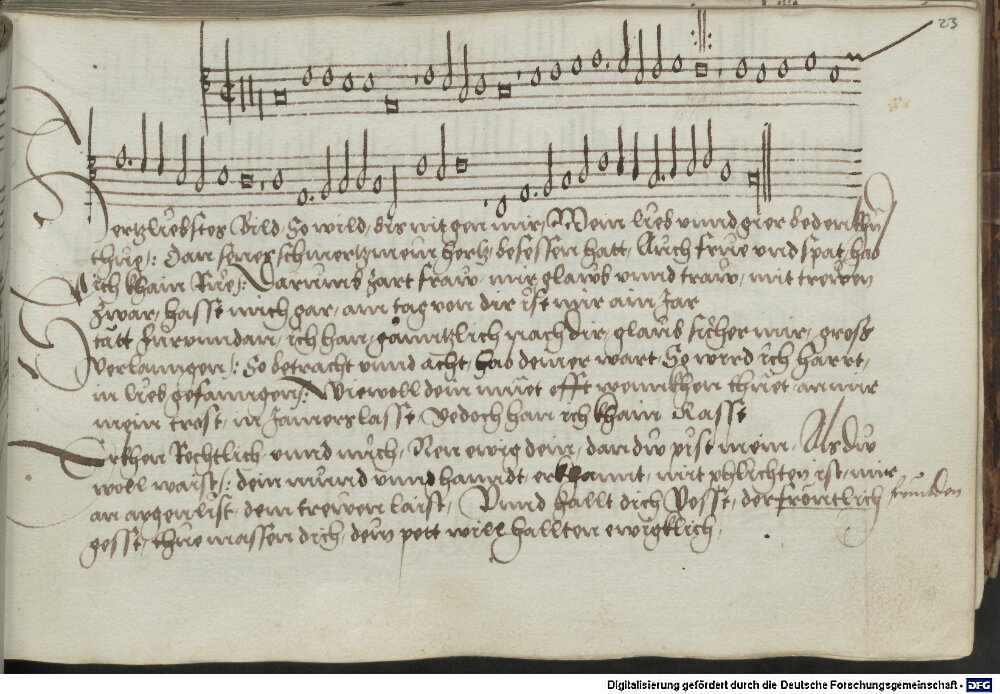 23
Hertzliebstes Bild, So wild, bis nit gen mir, Mein lieb vnnd gier bedenkhn
thue /: Dan senes schmertz mein hertz besessen hatt, Auch frue vnd spat, hab
ich khain Rue :/ Darumb zart fraw, mir glaub vnnd traw, mit trewen
zwar, hasse mich gar, ain tag von dir ist mir ain Jar
tätt für vnndan, ich han, gäntzlich nach dir, glaub sicher mir, gross
verlanngen /: So betracht vnnd acht, hab deiner wart, So wird ich harrt,
in lieb gefanngen /: Wiewoll dein müet offt wennkhen thuet, an mir
mein trost, in Jamers lasst, Jedoch han ich khain Rasst
Erkhen Rechtlich, vnnd mich, Nen ewig dein, dan du pist mein, Als du
woll waist /: dein mund vnnd hanndt, erkhannt, mit phlichten ist, mir
an argenlist, dein trewen laist, Vnnd hallt dich Vesst, der frontlich freunden
gesst, thue massen dich, dein pott will hallten ewigklich,
Digitalisierung gefördert durch die Deutsche Forschungsgemeinschaft - DFG